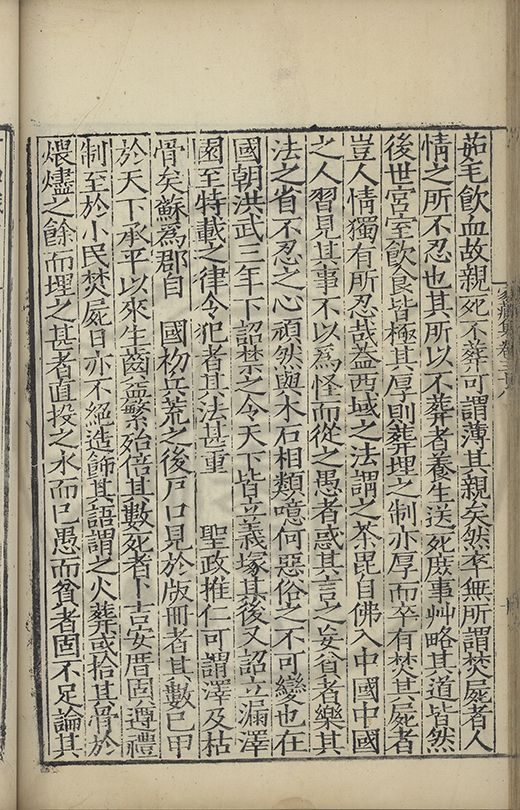 茹毛飲血故親死不葬可謂薄其親矣然卒無所謂焚屍者人
情之所不忍也其所以不葬者養生送死庶事艸略其道皆然
後世宮室飲食皆極其厚則葬埋之制亦厚而卒有焚其屍者
豈人情獨有所忍哉葢西域之法謂之茶毘自佛入中國中國
之人習見其事不以爲怪而從之愚者惑其言之妄貧者樂其
法之省不忍之心頑然與木石相類噫何惡俗之不可變也在
國朝洪武三年下詔禁之令天下皆立義塚其後又詔立漏澤
園至特載之律令犯者其法甚重 聖政推仁可謂澤及枯
骨矣蘇爲郡自 國初兵荒之後戸口見於版冊者其數已甲
於天下承平以來生齒益繁殆倍其數死者卜吉安厝固遵禮
制至於小民焚屍日亦不絶造飾其語謂之火葬或拾其骨於
煨燼之餘而埋之甚者直投之水而已愚而貧者固不足論其
家藏集卷三十八